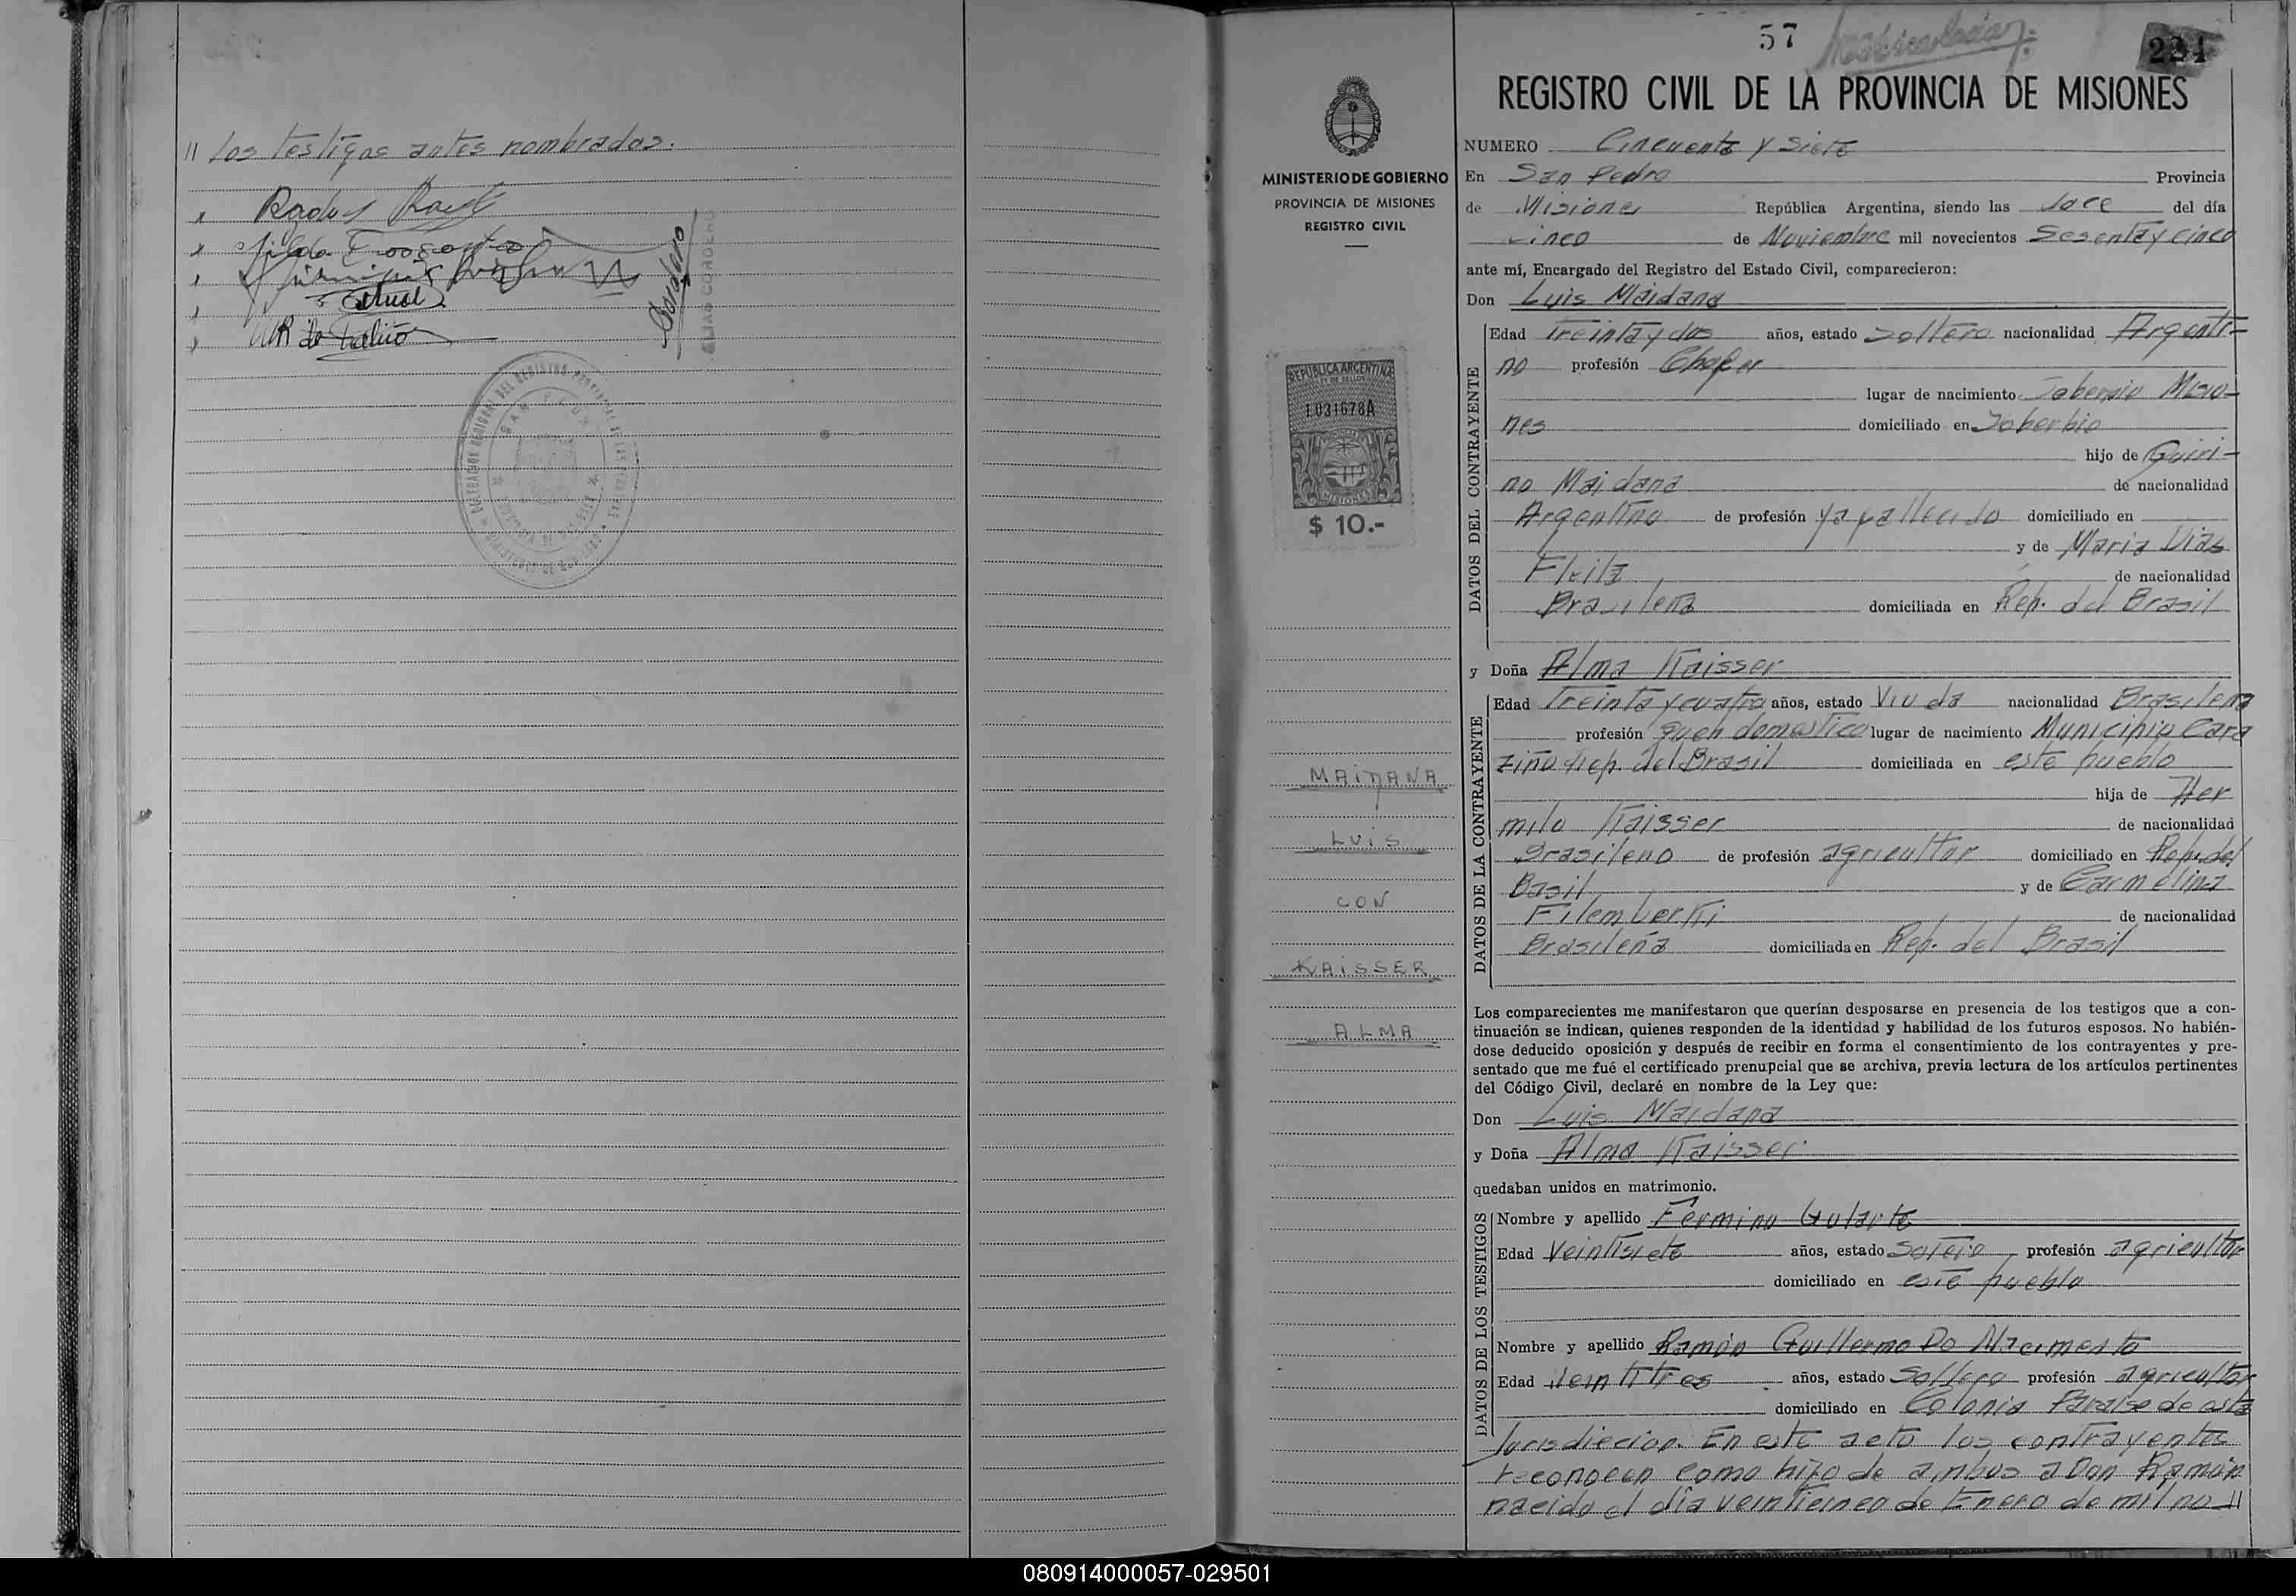 // los testigos antes nombrados.
ELIAS CORDERO
57
Matriculacion
REGISTRO CIVIL DE LA PROVINCIA DE MISIONES
MINISTERIO DE GOBIERNO
PROVINCIA DE MISIONES
REGISTRO CIVIL
REPUBLICA ARGENTINA
LEY DE SELLOS
1.031678A
MISIONES
$ 10.-
MAIDANA
LUIS
CON
KAISSER
ALMA
NUMERO Cincuenta y Siete
En San Pedro Provincia
de Misiones República Argentina, siendo las doce del día
cinco de Noviembre mil novecientos Sesenta y cinco
ante mí, Encargado del Registro del Estado Civil, comparecieron:
Don Luis Maidana
DATOS DEL CONTRAYENTE
Edad Treinta y dos años, estado soltero nacionalidad Argenti-
no profesión Chofer
lugar de nacimiento Misio-
nes domiciliado en
hijo de Quiri-
no Maidana de nacionalidad
Argentino de profesión ya fallecido domiciliado en
y de Maria Dias
de nacionalidad
Brasileña domiciliada en Rep. del Brasil
y Doña Alma Kaisser
DATOS DE LA CONTRAYENTE
Edad Treinta y cuatro años, estado Viuda nacionalidad Brasileña
profesión queh domestico lugar de nacimiento Municipio Cara
ziño Rep. del Brasil domiciliada en este pueblo
hija de Her
milo Kaisser de nacionalidad
Brasileño de profesión agricultor domiciliado en Rep. del
Basil y de Carmelina
Filemberki de nacionalidad
Brasileña domiciliada en Rep. del Brasil
Los comparecientes me manifestaron que querían desposarse en presencia de los testigos que a con-
tinuación se indican, quienes responden de la identidad y habilidad de los futuros esposos. No habién-
dose deducido oposición y después de recibir en forma el consentimiento de los contrayentes y pre-
sentado que me fué el certificado prenupcial que se archiva, previa lectura de los artículos pertinentes
del Código Civil, declaré en nombre de la Ley que:
Don Luis Maidana
y Doña Alma Kaisser
quedaban unidos en matrimonio.
DATOS DE LOS TESTIGOS
Nombre y apellido Fermino Gularte
Edad Veintisiete años, estado Soltero profesión agricultor
domiciliado en este pueblo
Nombre y apellido Ramón Guillermo Do Nacimento
Edad Veintitres años, estado Soltero profesión agricultor
domiciliado en Colonia Paraiso de esta
Jurisdiccion. En este acto los contrayentes
reconocen como hijo de ambos a Don Ramón
nacido el día veinticinco de Enero de mil no //
080914000057-029501